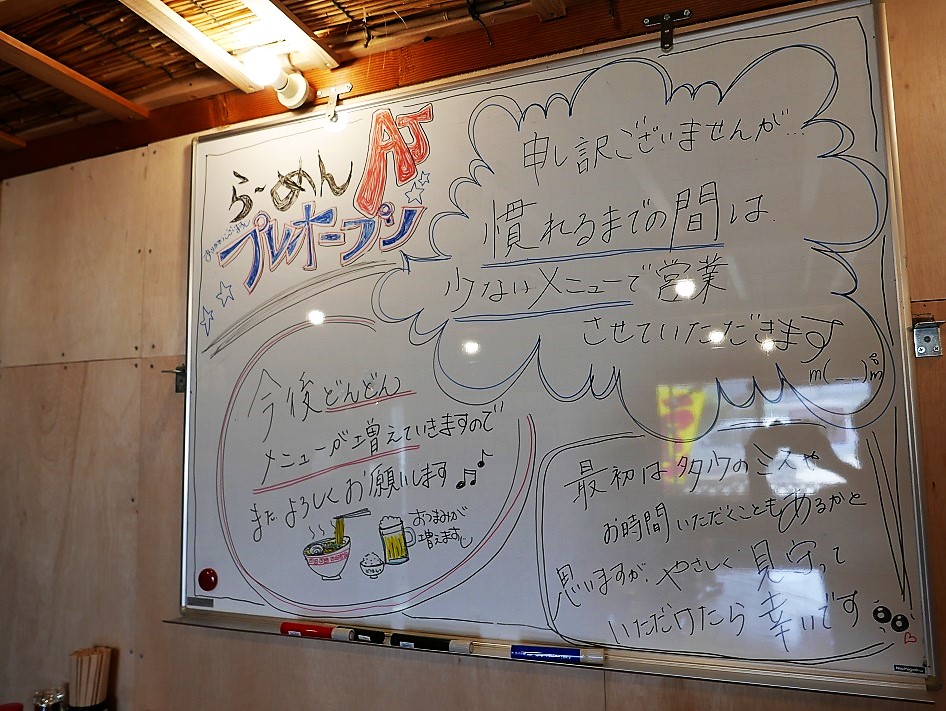 らーめん AJ
プレオープン
申し訳ございませんが...
慣れるまでの間は
少ないメニューで営業
させていただきます
m(__)m
今後どんどん
メニューが増えていきますので
またよろしくお願いします♫♪
おつまみが
増えます
最初は多少のミスや
お時間いただくこともあるかと
思いますが、やさしく見守って
いただけたら幸いです